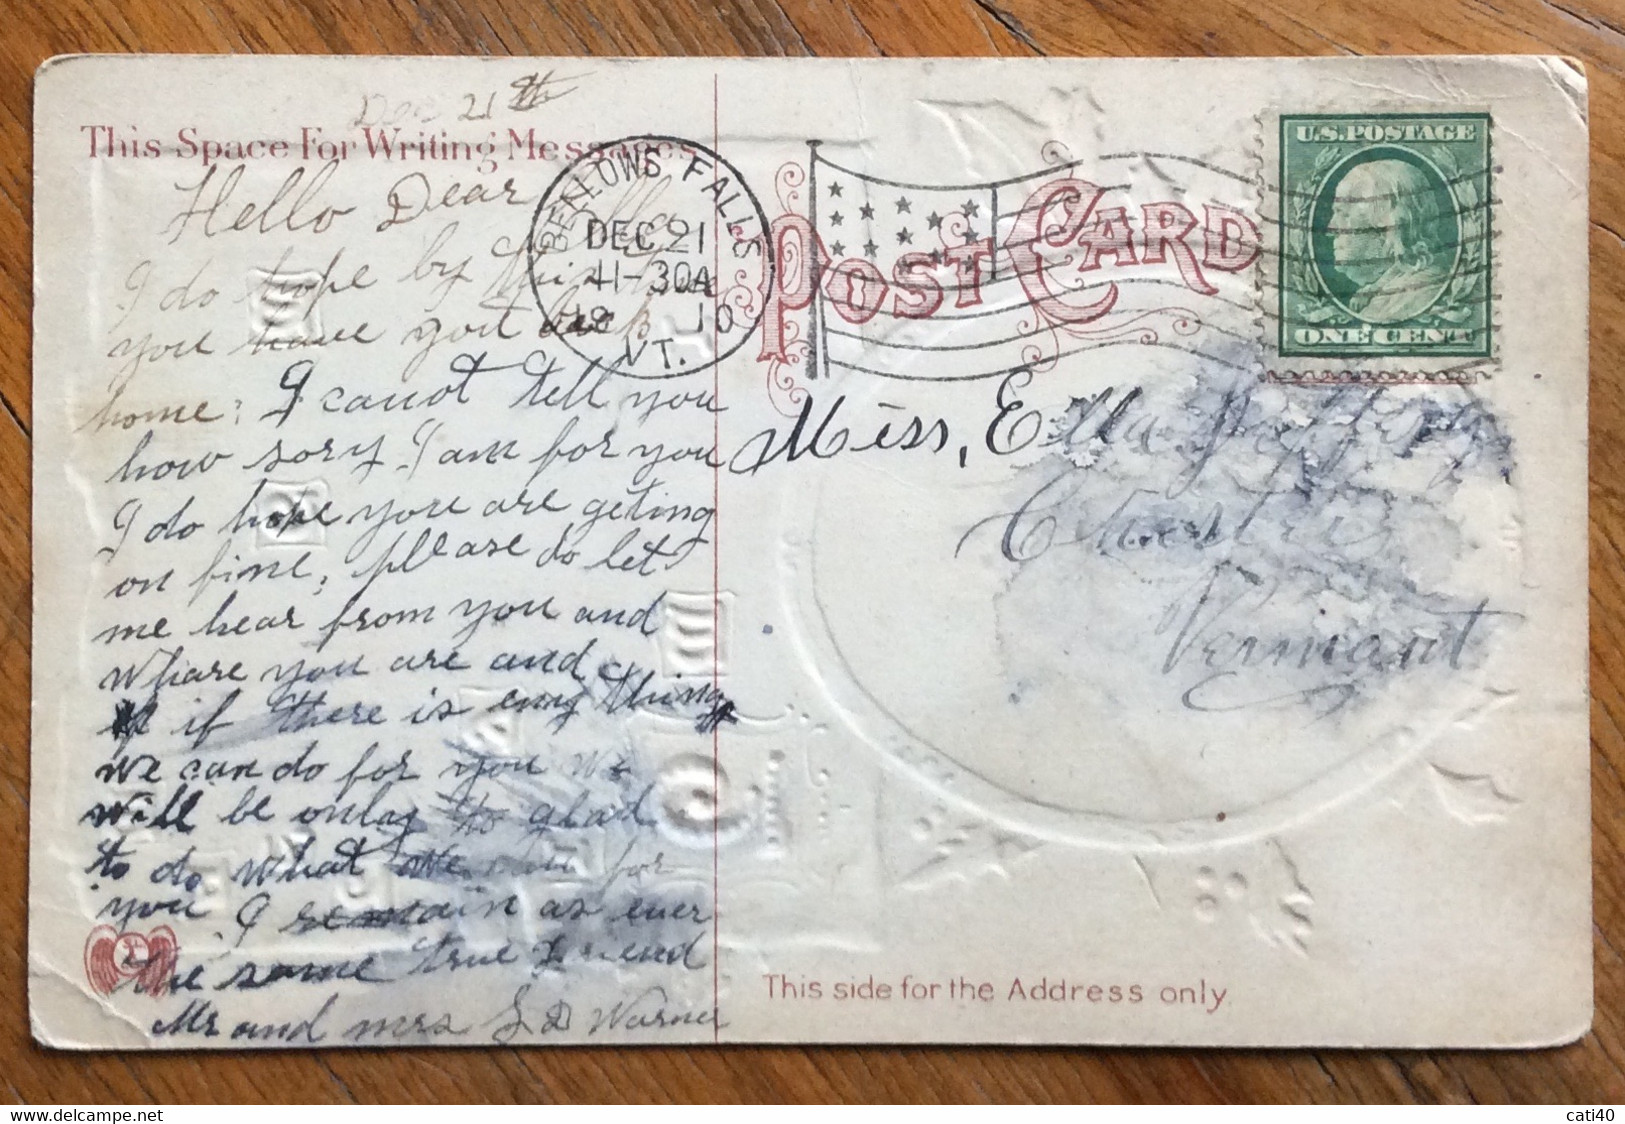 Dec 21th
This Space For Writing Messages
Hello Dear Ella
I do hope by this time
you have you back
home; I canot tell you
how sory I am for you
I do hope you are geting
on fine, please do let
me hear from you and
whare you are and
if there is eny thing
we can do for you we
will be only to glad
to do what we can for
you I remain as ever
the same true Friend
Mr and mrs J D Warner
BELLOWS FALLS
DEC 21
11-30A
19 10
VT.
POST CARD
U.S. POSTAGE
ONE CENT
Miss, Ella
Chester
Vermont
This side for the Address only.
delcampe.net
cati40